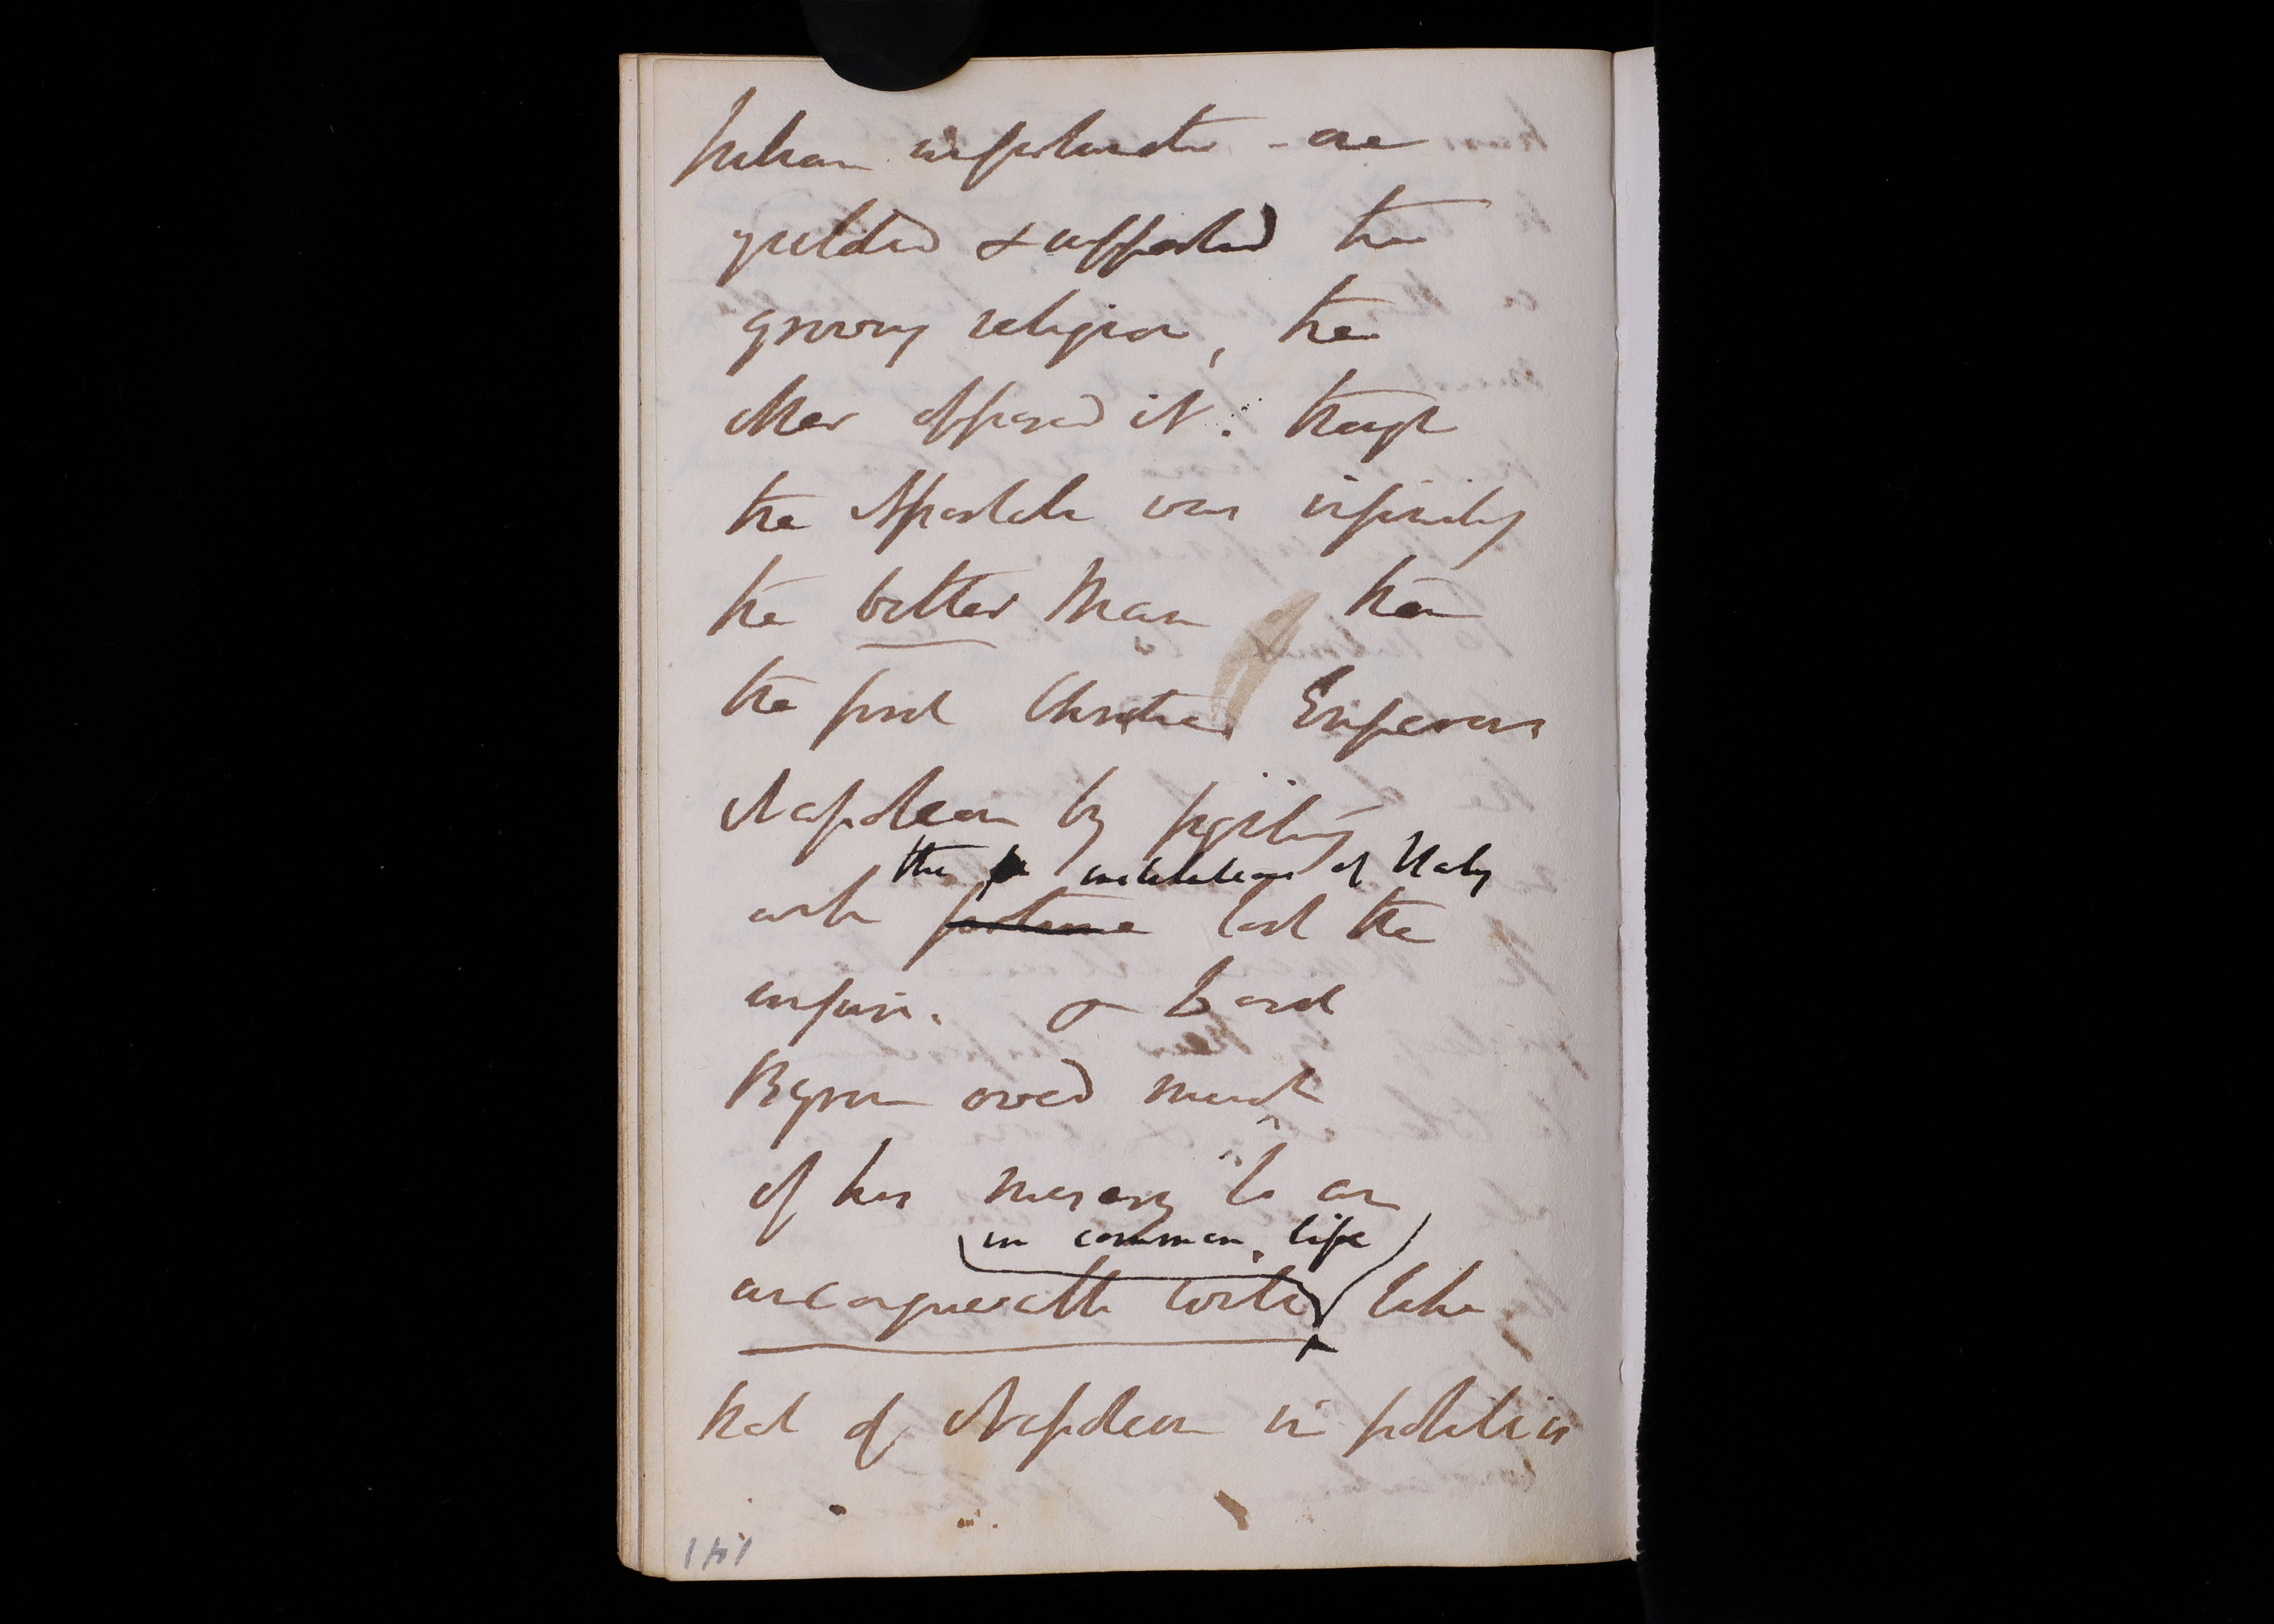 Julian unfortunate - one
yielded & supported the
growing religion, the
other opposed it: though
the Apostate was infinitely
the better Man than
the first Christian Emperor
Napoleon by fighting
the institutions of Italy
with fortune lost the
empire. & Lord
Byron owed much
of his misery to an
in common life
unconquerable will like
that of Napoleon in politics